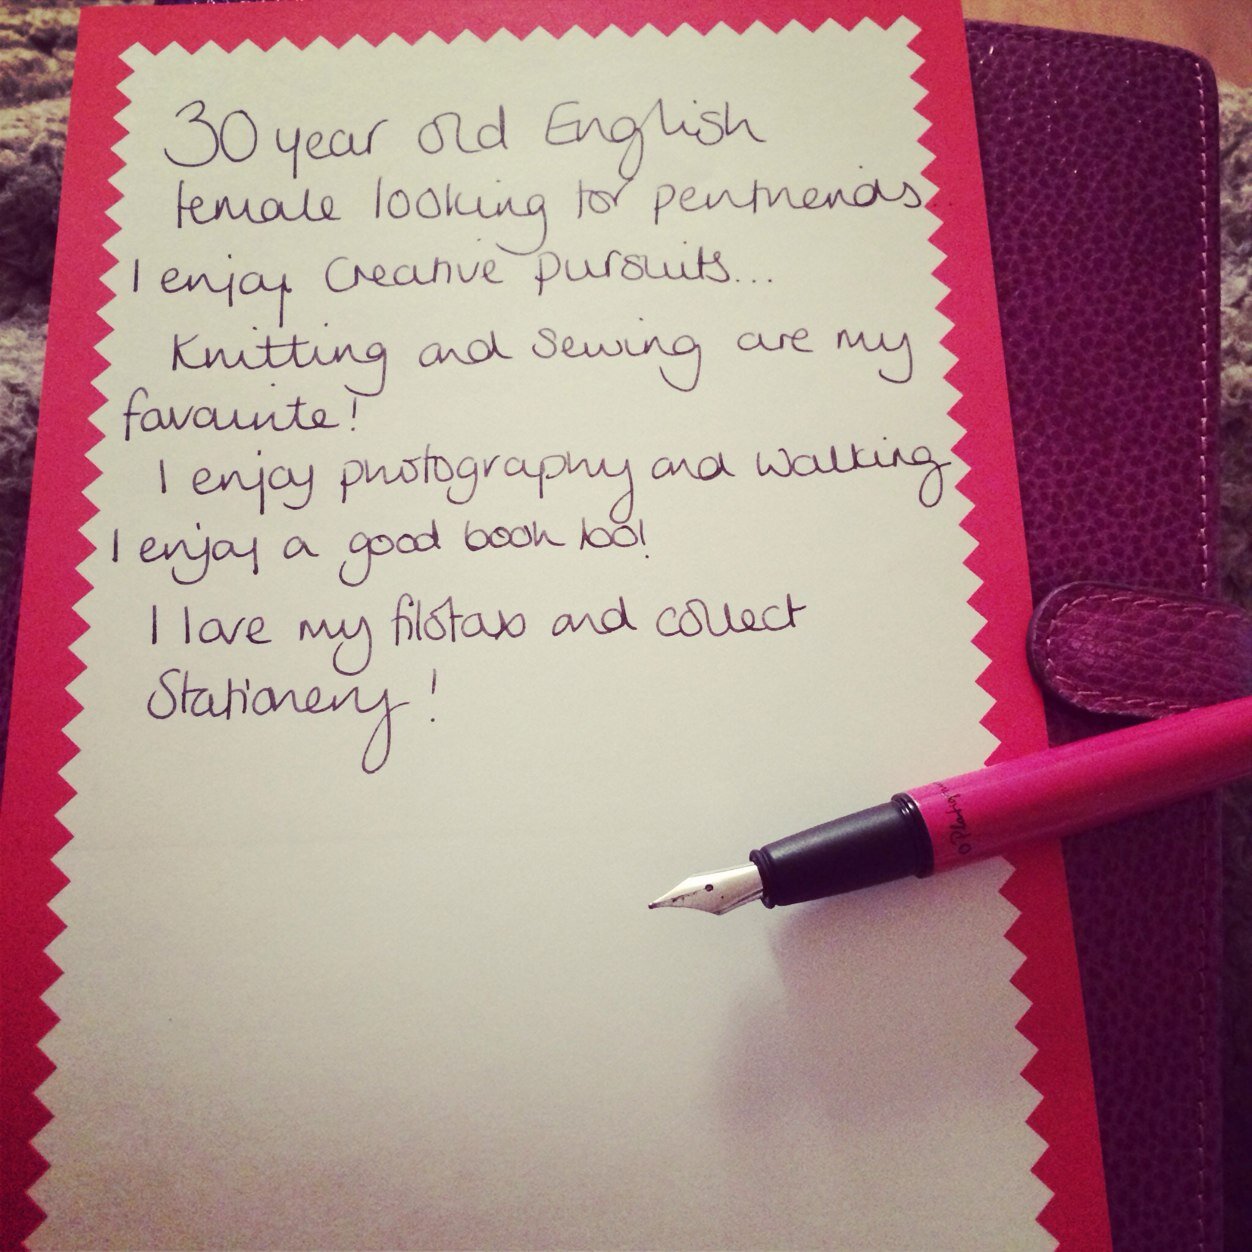 30 year old English
female looking for penfriends..
I enjoy Creative pursuits...
Knitting and Sewing are my
favourite!
I enjoy photography and walking
I enjoy a good book too!
I love my filofax and collect
Stationery!